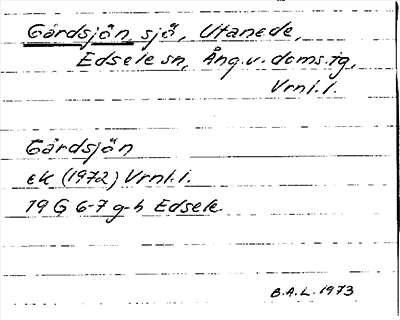 Gårdsjön, sjö, Utanede,
Edsele sn, Ång.v. doms.tg,
Vrnl.l.
Gårdsjön
ek (1972) Vrnl.l.
19 G 6-7 g-h Edsele.
B.A.L. 1973